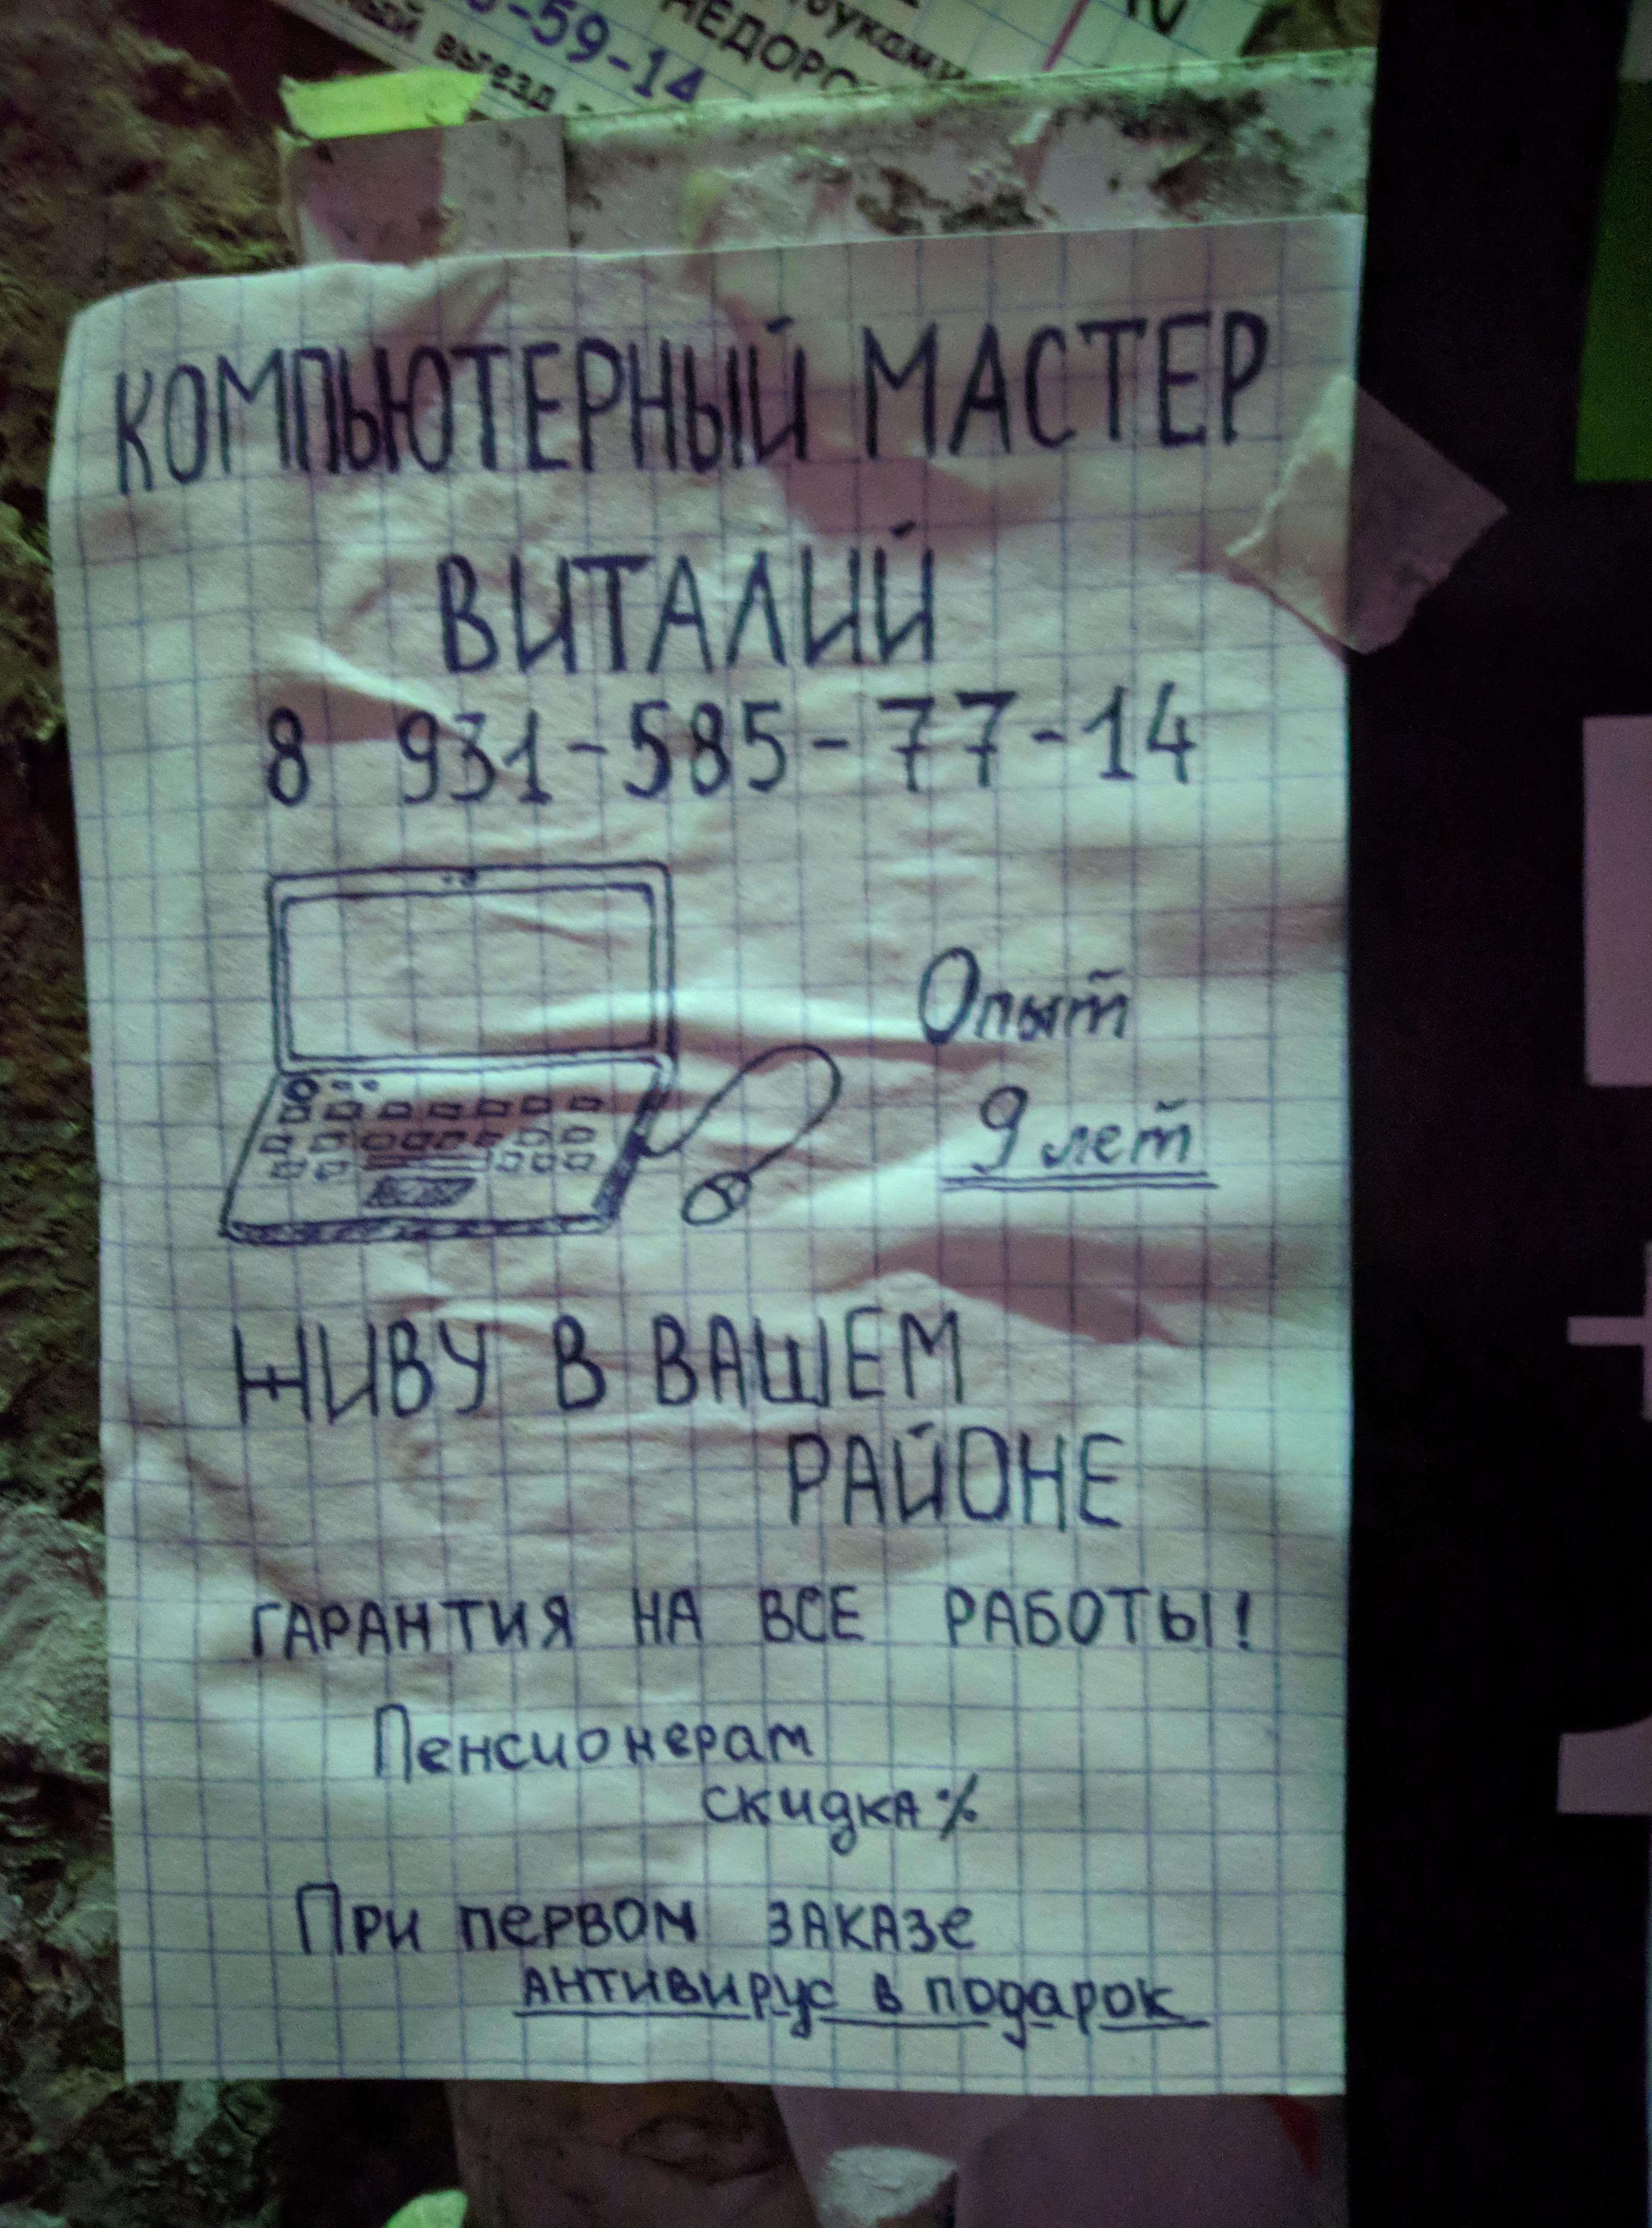 -59-14
НЕДОРО
выезд
КОМПЬЮТЕРНЫЙ МАСТЕР
ВИТАЛИЙ
8 931-585-77-14
Опыт
9 лет
ЖИВУ В ВАШЕМ
РАЙОНЕ
ГАРАНТИЯ НА ВСЕ РАБОТЫ!
Пенсионерам
скидка %
При первом заказе
антивирус в подарок